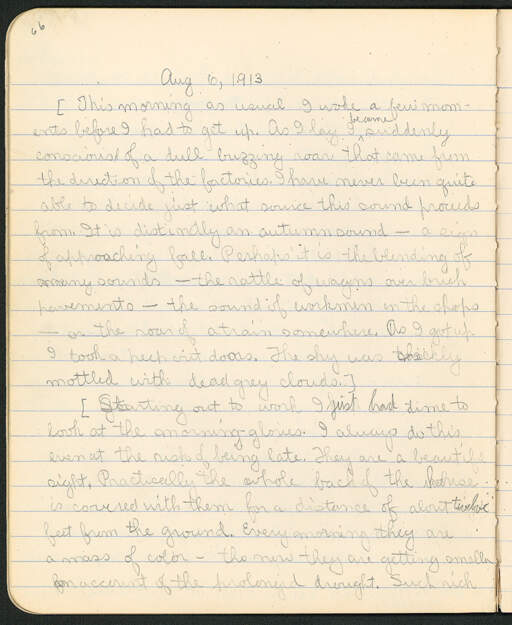 66
Aug 6, 1913
[ This morning as usual I woke a few mom-
ents before I had to get up. As I lay I became suddenly
conscious of a dull buzzing roar that came from
the direction of the factories. I have never been quite
able to decide just what source this sound proceeds
from. It is distinctly an autumn sound — a sign
of approaching fall. Perhaps it is the blending of
many sounds — the rattle of wagons over brick
pavements — the sound of workmen in the shops
— or the roar of a train somewhere. As I got up
I took a peep out doors. The sky was thickly
mottled with dead grey clouds. ]
[ Starting out to work I just had time to
look at the morning-glories. I always do this
even at the risk of being late. They are a beautiful
sight. Practically the whole back of the house
is covered with them for a distance of about twelve
feet from the ground. Every morning they are
a mass of color — tho now they are getting smaller
on account of the prolonged drought. Such rich